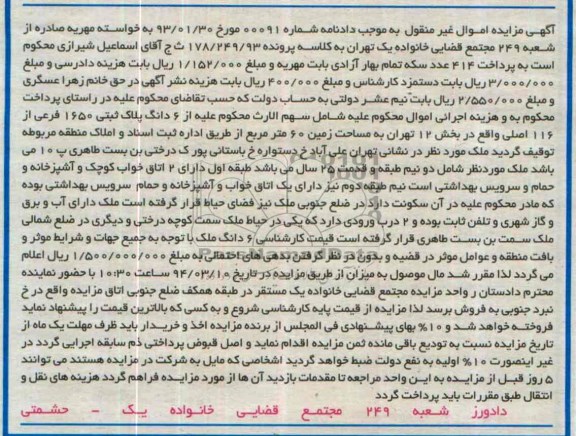 آگهی مزایده اموال غیر منقول به موجب دادنامه شماره ۰۰۰۹۱ مورخ ۹۳/۰۱/۳۰ به خواسته مهریه صادره از
شعبه ۲۴۹ مجتمع قضایی خانواده یک تهران به کلاسه پرونده ۱۷۸/۲۴۹/۹۳ ث ج آقای اسماعیل شیرازی محکوم
است به پرداخت ۴۱۴ عدد سکه تمام بهار آزادی بابت مهریه و مبلغ ۱/۱۵۲/۰۰۰ ریال بابت هزینه دادرسی و مبلغ
۳/۰۰۰/۰۰۰ ریال بابت دستمزد کارشناس و مبلغ ۴۰۰/۰۰۰ ریال بابت هزینه نشر آگهی در حق خانم زهرا عسگری
و مبلغ ۲/۵۵۰/۰۰۰ ریال بابت نیم عشر دولتی به حساب دولت که حسب تقاضای محکوم علیه در راستای پرداخت
محکوم به و هزینه اجرایی اموال محکوم علیه شامل سهم الارث محکوم علیه از ۶ دانگ پلاک ثبتی ۱۶۵۰ فرعی از
۱۱۶ اصلی واقع در بخش ۱۲ تهران به مساحت زمین ۶۰ متر مربع از طریق اداره ثبت اسناد و املاک منطقه مربوطه
توقیف گردید ملک مورد نظر در نشانی تهران علی آباد خ دستواره خ باستانی پور ک درختی بن بست طاهری پ ۱۰ می
باشد ملک موردنظر شامل دو نیم طبقه و قدمت ۲۵ سال می باشد طبقه اول دارای ۲ اتاق خواب کوچک و آشپزخانه و
حمام و سرویس بهداشتی است نیم طبقه دوم نیز دارای یک اتاق خواب و آشپزخانه و حمام سرویس بهداشتی بوده
که مادر محکوم علیه در آن سکونت دارد در ضلع جنوبی ملک نیز فضای حیاط قرار گرفته است ملک دارای آب و برق
و گاز شهری و تلفن ثابت بوده و ۲ درب ورودی دارد که یکی در حیاط ملک سمت کوچه درختی و دیگری در ضلع شمالی
ملک سمت بن بست طاهری قرار گرفته است قیمت کارشناسی ۶ دانگ ملک با توجه به جمیع جهات و شرایط موثر و
بافت منطقه و عوامل موثر در قضیه و بدون در نظر گرفتن بدهی های احتمالی به مبلغ ۱/۵۰۰/۰۰۰/۰۰۰ ریال اعلام
می گردد لذا مقرر شد مال موصول به میزان از طریق مزایده در تاریخ ۹۴/۰۳/۱۰ ساعت ۱۰:۳۰ با حضور نماینده
محترم دادستان ر واحد مزایده مجتمع قضایی خانواده یک مستقر در طبقه همکف ضلع جنوبی اتاق مزایده واقع در خ
نبرد جنوبی به فروش برسد لذا مزایده از قیمت پایه کارشناسی شروع و به کسی که بالاترین قیمت را پیشنهاد نماید
فروخته خواهد شد و ۱۰% بهای پیشنهادی فی المجلس از برنده مزایده اخذ و خریدار باید ظرف مهلت یک ماه از
تاریخ مزایده نسبت به تودیع باقی مانده ثمن مزایده اقدام نماید و اصل قبوض پرداختی ذم سابقه اجرایی گردد در
غیر اینصورت ۱۰% اولیه به نفع دولت ضبط خواهد گردید اشخاصی که مایل به شرکت در مزایده هستند می توانند
۵ روز قبل از مزایده به این واحد مراجعه تا مقدمات بازدید آن ها از مورد مزایده فراهم گردد هزینه های نقل و
انتقال طبق مقررات باید پرداخت گردد
دادورز شعبه ۲۴۹ مجتمع قضایی خانواده یک - حشمتی